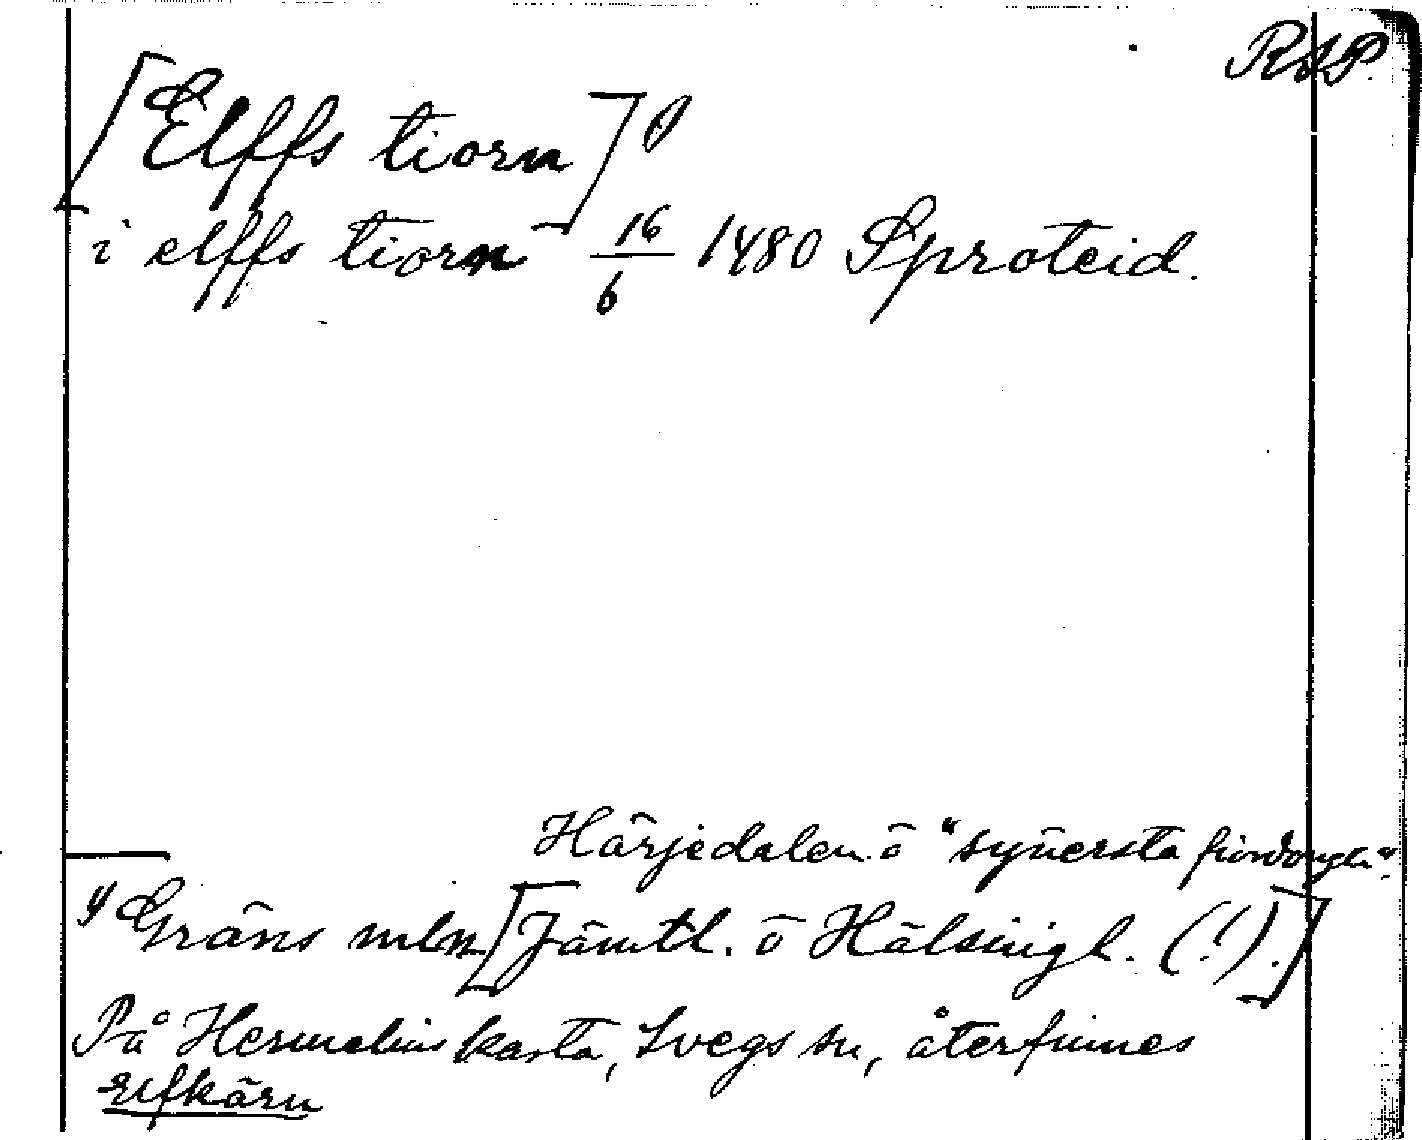 RAP.
[Elffs tiorn] 1)
i elffs tiorn 16/6 1480 Sproteid.
Härjedalen o "synersta fiordongen"
1) Gräns mln [Jämtl. o Hälsingl. (!).]
På Hermelins karta, Svegs sn, återfinnes
Elfkärn